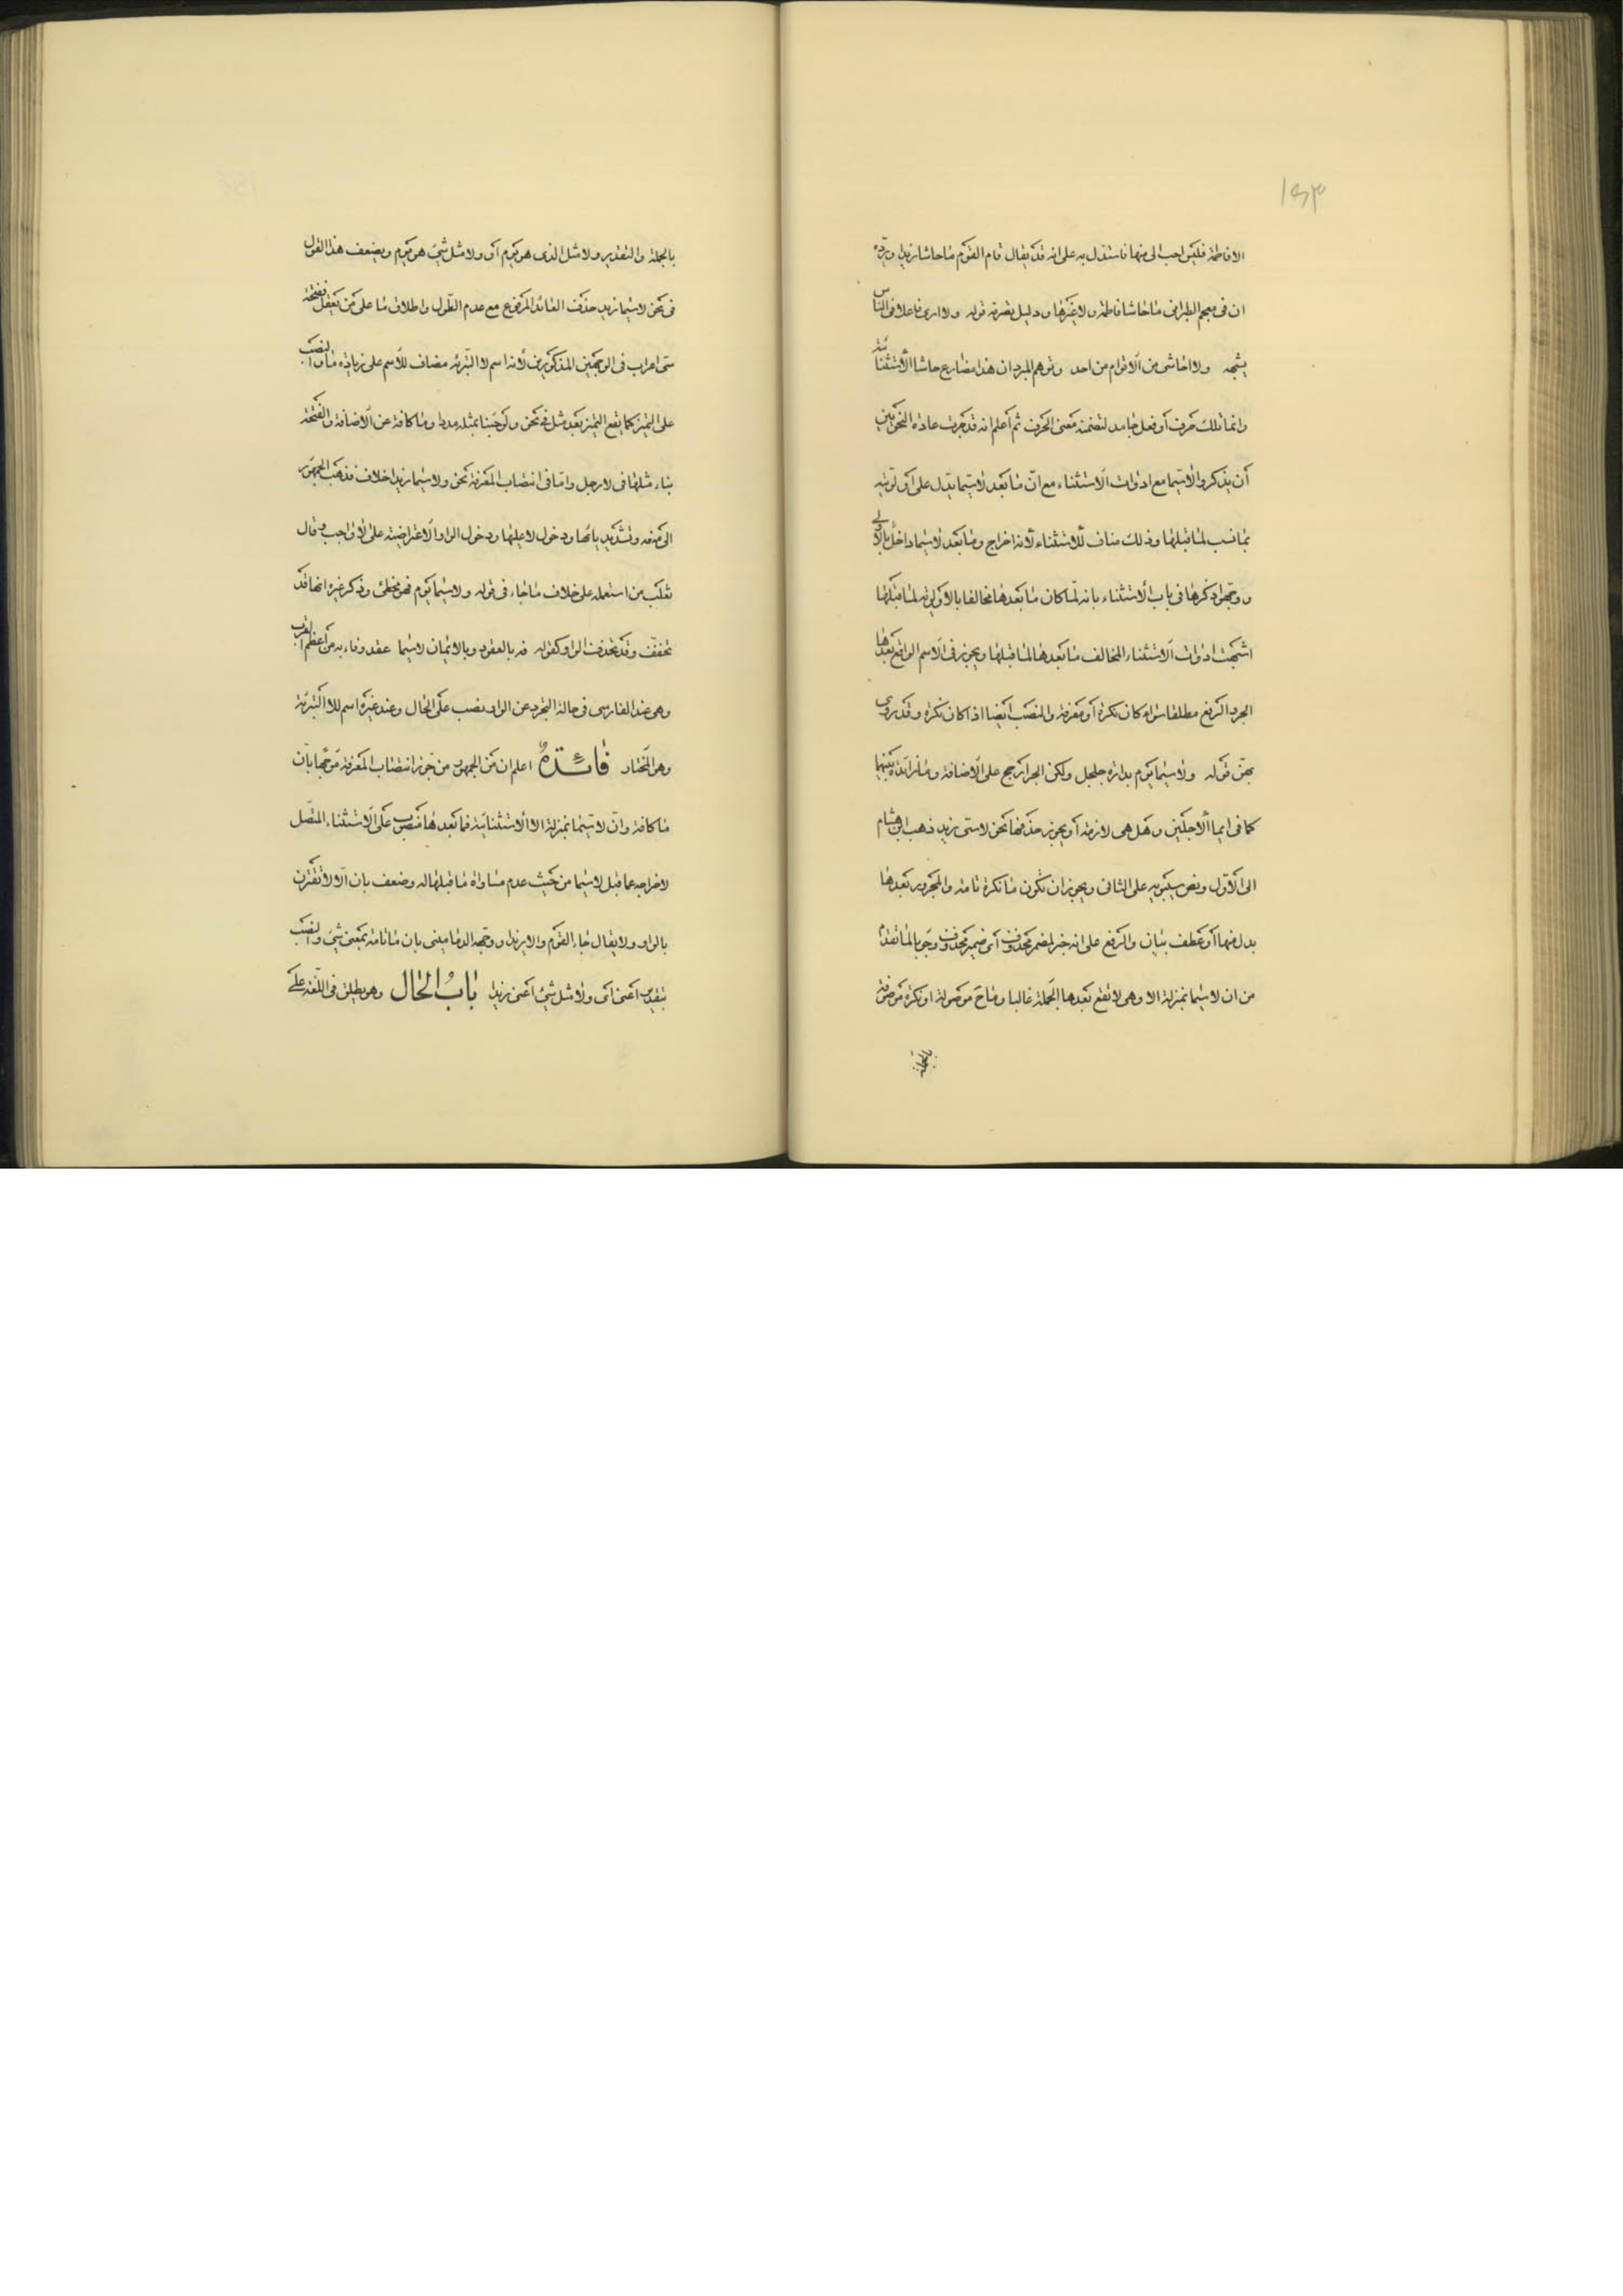 ١٥٣
الا فاطمة فليس احب الى منها فاستدل به على انه قد يقال قام القوم ما حاشا زيدا ويرده
ان فى معجم الطبرانى ما حاشا فاطمة ولا غيرها ودليل تصرفه قوله ولا ارى فاعلا فى الناس
يشبهه ولا احاشى من الاقوام من احد وتوهم المبرد ان هذا مضارع حاشا الاستثنائية
وانما تلك حرف أو فعل جامد لتضمنه معنى الحرف ثم أعلم انه قد جرت عادة النحويين
أن يذكروا لاسيما مع ادوات الاستثناء مع انّ ما بعد لاسيما يدل على اولويته
بما نسب لما قبلها وذلك مناف للاستثناء لأنه اخراج وما بعد لاسيما داخل بالاولى
ووجهوا ذكرها فى باب الاستثناء بانه لما كان ما بعدها مخالفا بالاولوية لما قبلها
اشبهت ادوات الاستثناء المخالف ما بعدها لما قبلها ويجوز فى الاسم الواقع بعدها
الجر والرفع مطلقا سواء كان نكرة أو معرفة والنصب أيضا اذا كان نكرة وقد روى
بهنّ قوله ولاسيما يوم بدارة جلجل ولكن الجر ارجح على الاضافة وما زائدة بينهما
كما فى ايما الاجلين وهل هى لازمة أو يجوز حذفها نحو لاسى زيد ذهب ابن هشام
الى الاول ونص سيبويه على الثانى ويجوز ان تكون ما نكرة تامة والمجرور بعدها
بدل منها أو عطف بيان والرفع على انه خبر لمضمر محذوف أى ضمير محذوف وجوبا لما تقدم
من ان لاسيما بمنزلة الا وهى لا تقع بعدها الجملة غالبا وما ح موصولة او نكرة موصوفة
بالجملة
بالجملة والتقدير ولا مثل الذى هو يوم أو ولا مثل شئ هو يوم ويضعف هذا القول
فى نحو لاسيما زيد حذف العائد المرفوع مع عدم الطول واطلاق ما على من يعقل ففتحة
سى اعراب فى الوجهين المذكورين لأنه اسم لا التبرئة مضاف للاسم على زيادة ما والنصب
على التميز كما يقع التميز بعد مثل فى نحو ولو جئنا بمثله مددا وما كافة عن الاضافة والفتحة
بناء مثلها فى لا رجل وامّا فى انتصاب المعرفة نحو ولاسيما زيدا خلاف فذهب الجمهور
الى منعه وتشديد يائها ودخول لا عليها ودخول الواو الاعتراضية على لا واجب وقال
ثعلب من استعمله على خلاف ما جاء فى قوله ولاسيما يوم فهو مخطئ وذكر غيره انها قد
تخفف وقد تحذف الواو كقوله فه بالعقود وبالايمان لاسيما عقد وفاء به من أعظم القرب
وهى عند الفارسى فى حالة التجرد عن الواو نصب على الحال وعند غيره اسم للا التبرئة
وهو المختار فائدة اعلم ان من الجمهور من جوز انتصاب المعرفة موجها بان
ما كافة وان لاسيما بمنزلة الا الاستثنائية فما بعدها منصوب على الاستثناء المتصل
لاخراجه عما قبل لاسيما من حيث عدم مساواة ما قبلها له وضعف بان الا لا تقترن
بالواو ولا يقال جاء القوم والا زيدا ووجهه الدمامينى بان ما تامة بمعنى شئ والنصب
بتقدير أعنى أى ولا مثل شئ أعنى زيدا باب الحال وهو يطلق فى اللغة على